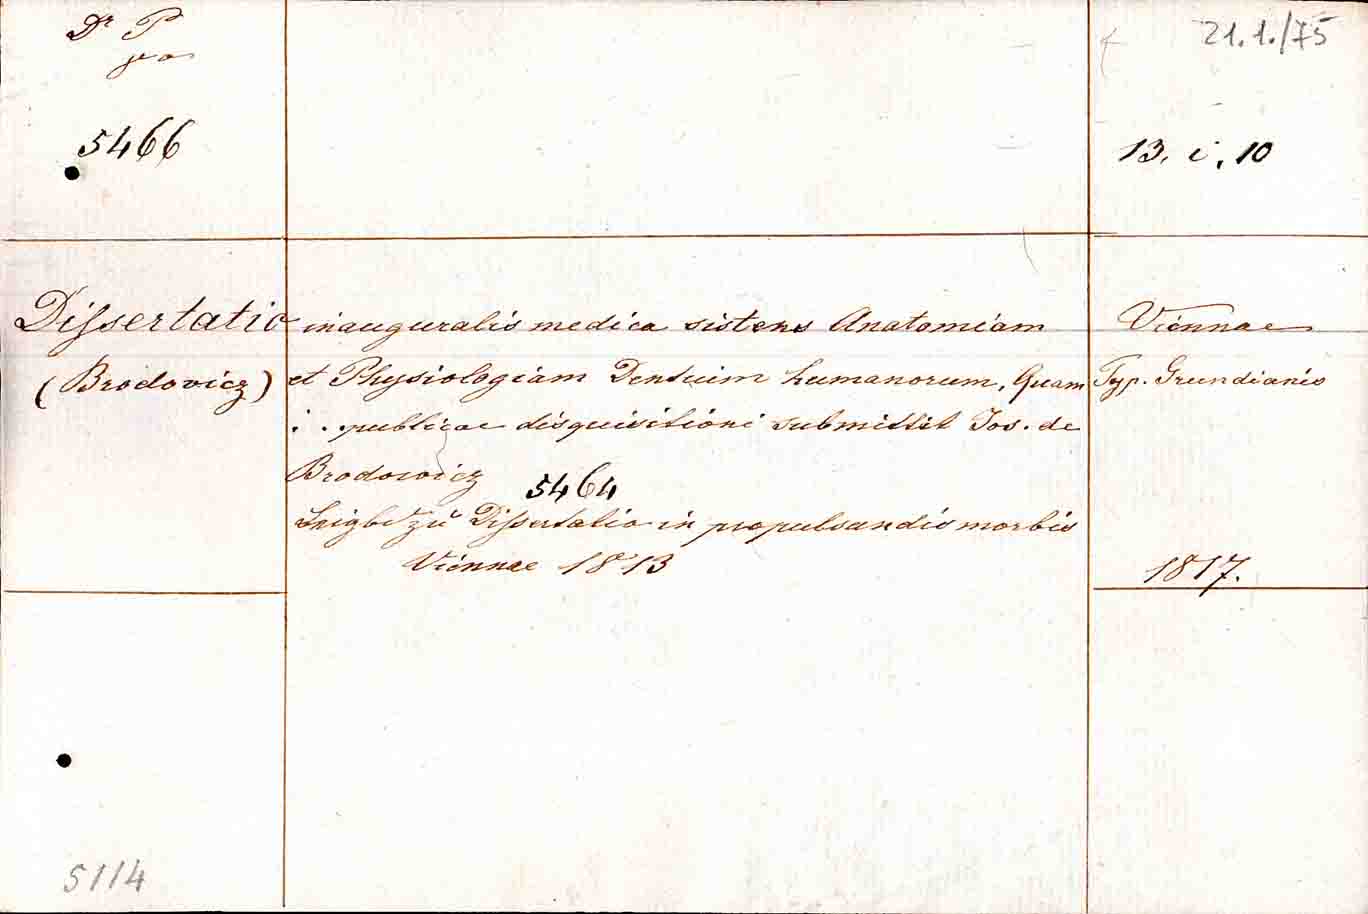 Dr P
21.1./75
5466
13. i. 10
Dissertatio inauguralis medica sistens Anatomiam Viennae
(Brodovicz) et Physiologiam Dentuim humanorum, Quam Typ. Grundianis
. . publicae disquisitioni submittit Jos. de
Brodowicz 5464
zu Dissertatio in propulsandis morbis
Viennae 1813
1817.
5114